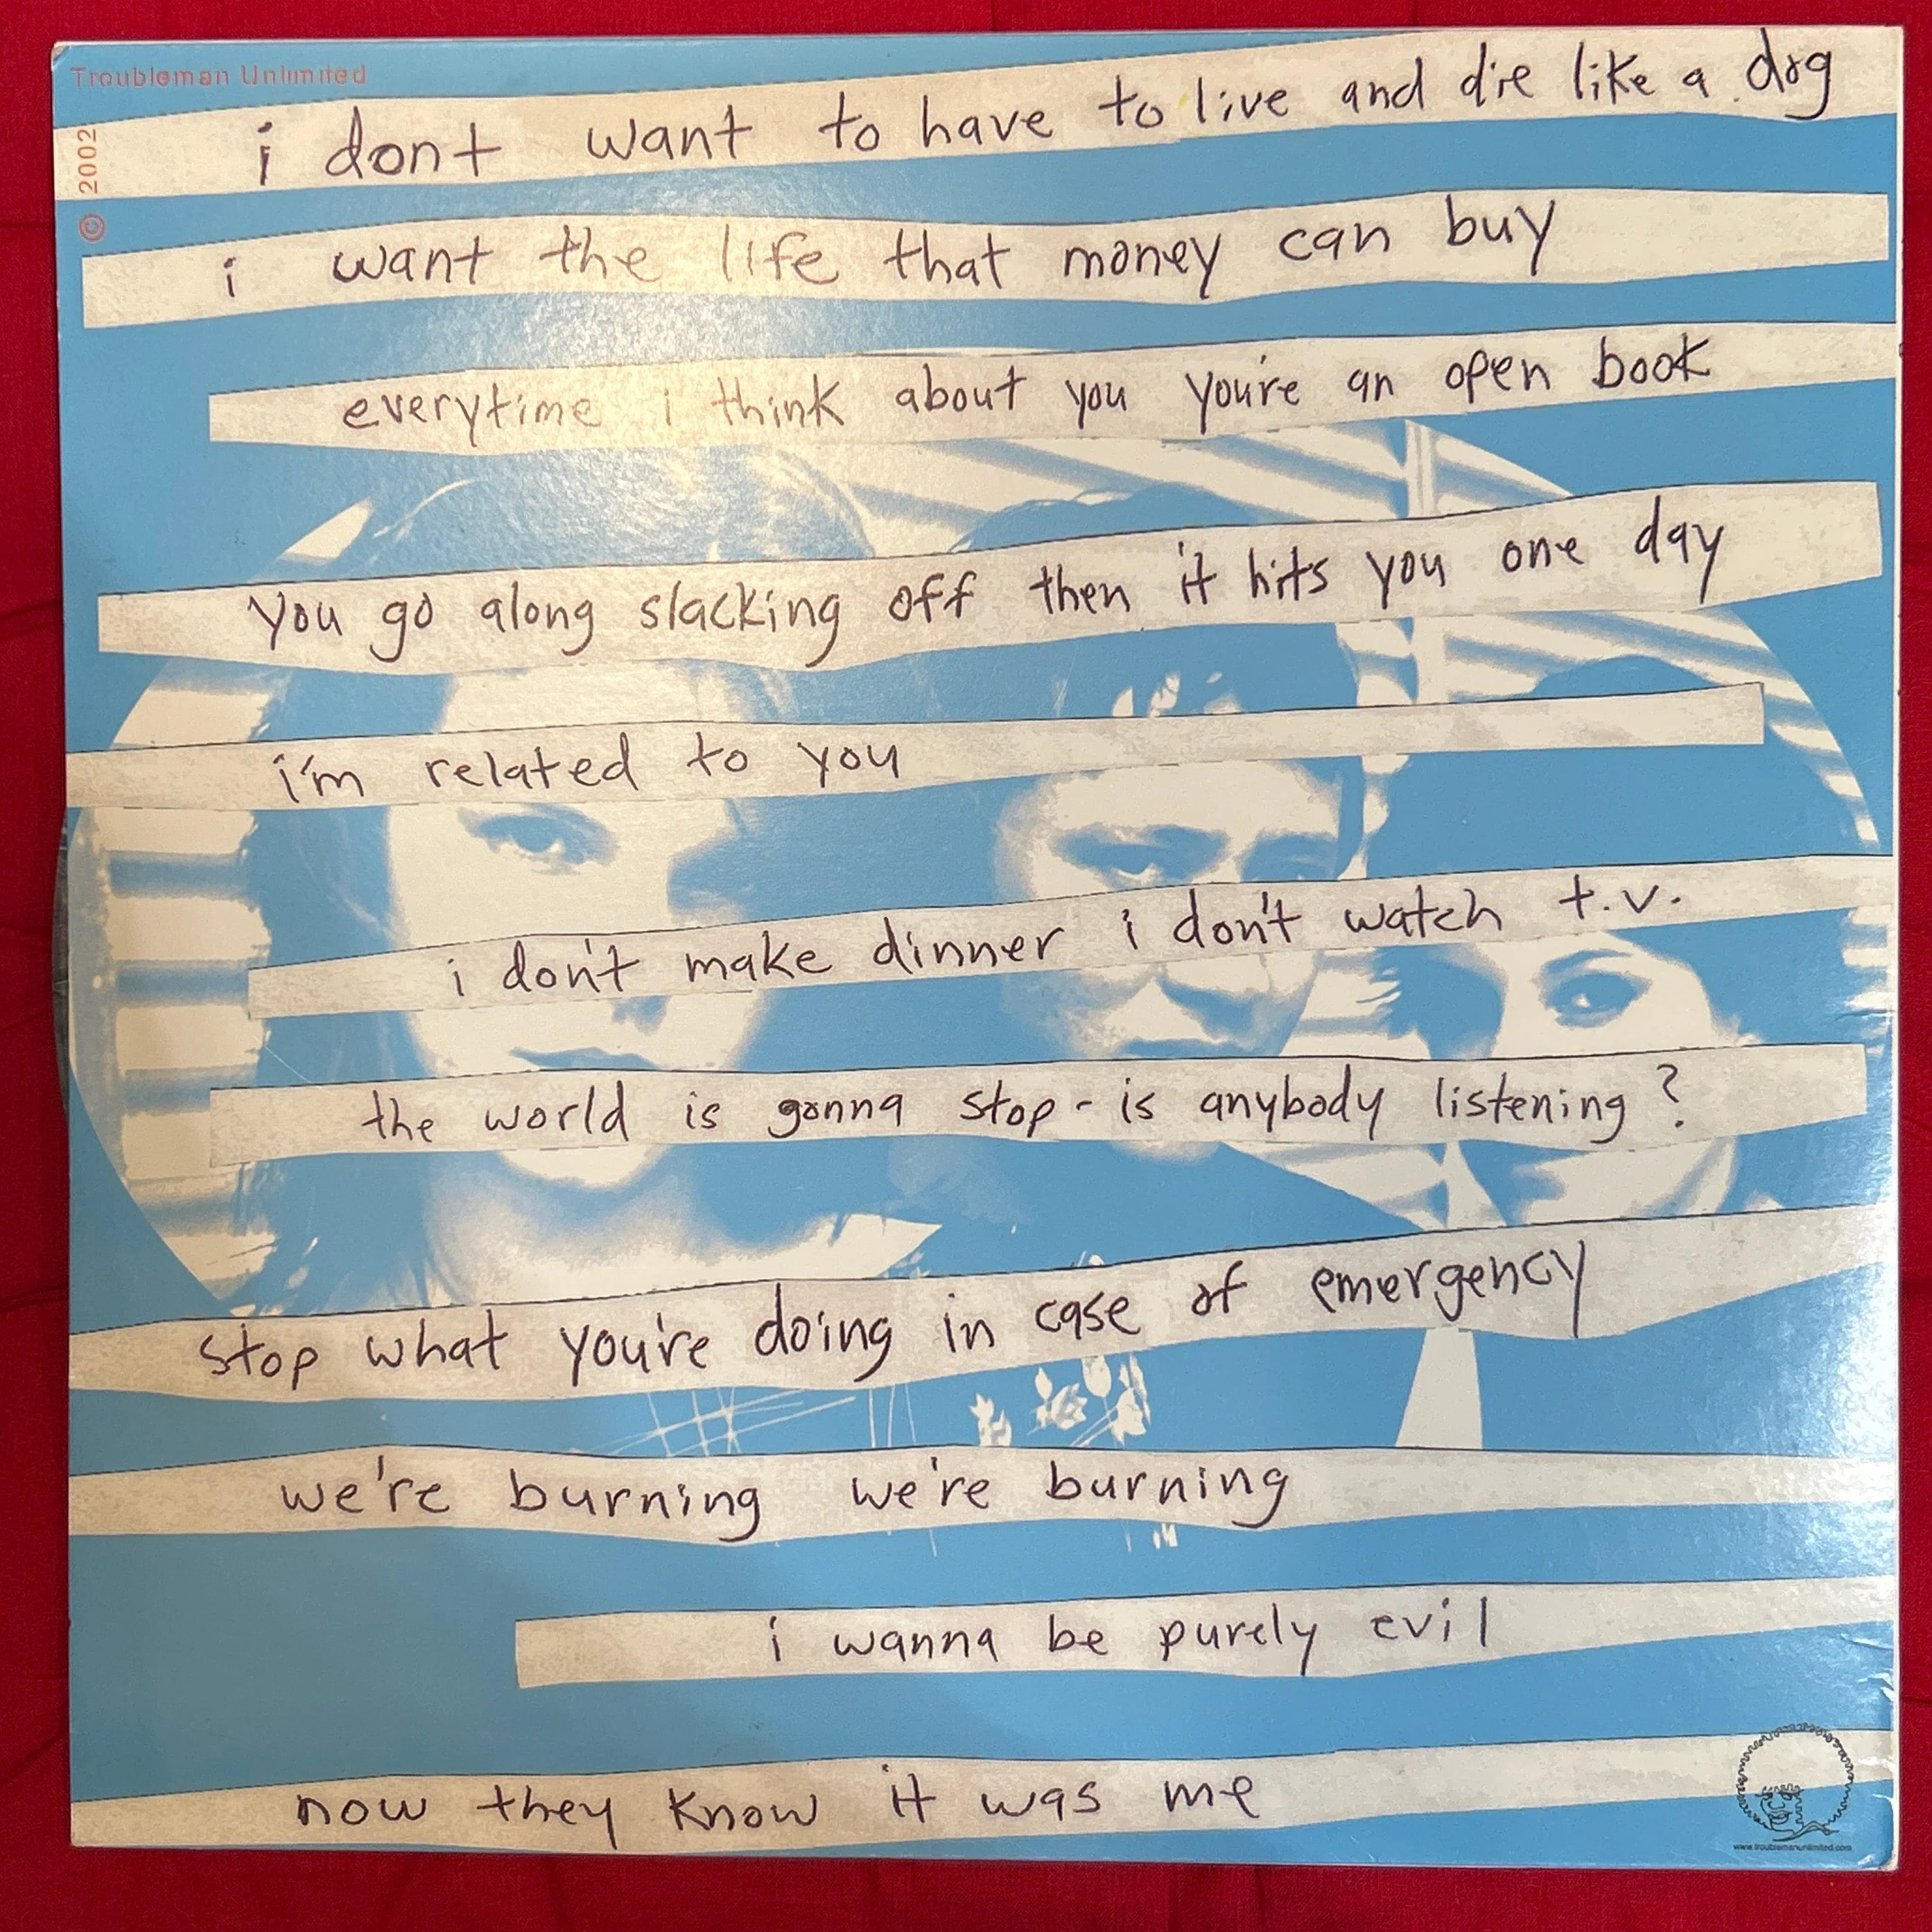 Troubleman Unlimited
© 2002
i dont want to have to live and die like a dog
i want the life that money can buy
everytime i think about you you're an open book
you go along slacking off then it hits you one day
i'm related to you
i don't make dinner i don't watch t.v.
the world is gonna stop - is anybody listening?
stop what you're doing in case of emergency
we're burning we're burning
i wanna be purely evil
now they know it was me
www.troublemanunlimited.com